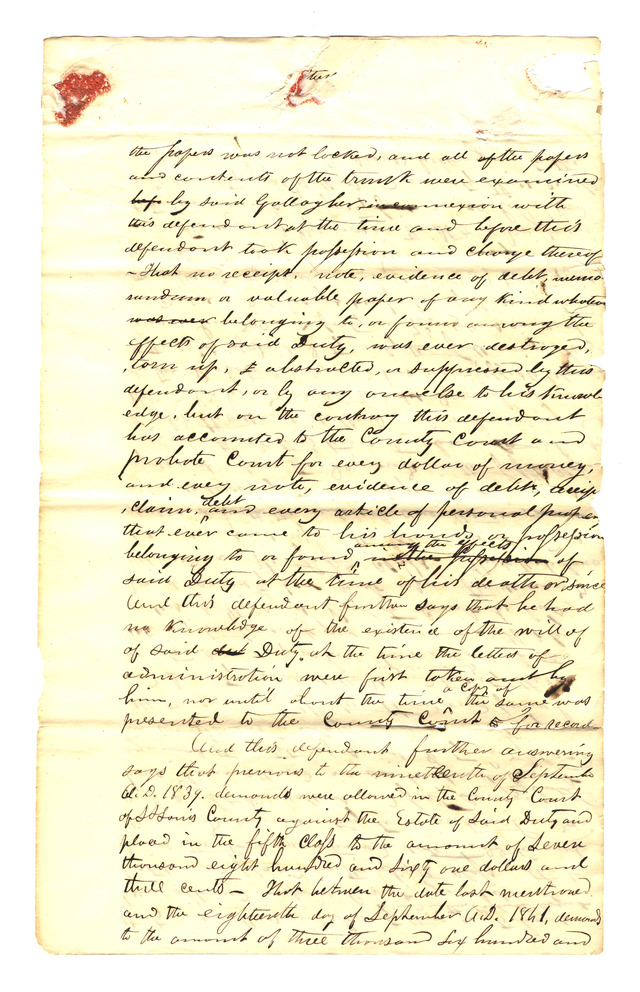 the papers was not locked, and all of the papers
and contents of the trunk were examined
by said Gallagher in connexion with
this defendant at the time and before this
defendant took possession and charge thereof
– That no receipt, note, evidence of debt, memo
randum or valuable paper of any kind whatever
was ever belonging to, or found among the
effects of said Duty, was ever destroyed,
torn up, abstracted, or suppressed by this
defendant, or by any one else to his knowl
edge, but on the contrary this defendant
has accounted to the County Court and
probate Court for every dollar of money,
and every note, evidence of debt, receip
claim, debt and every article of personal
that ever came to his hands, or possession
belonging to or found among the effects of
said Duty at the time of his death or since
And this defendant further says that he had
no knowledge of the existence of the will of
of said Duty at the time the letters of
administration were first taken out by
him, nor until about the time a copy of the same was
presented to the County Court for record
And this defendant further answering
says that previous to the nineteenth of September
A.D. 1839. demands were allowed in the County Court
of St Louis County against the Estate of said Duty and
placed in the fifth class to the amount of seven
thousand eight hundred and sixty one dollars and
three cents – That between the date last mentioned
and the eighteenth day of September A.D. 1841, demands
to the amount of three thousand six hundred and